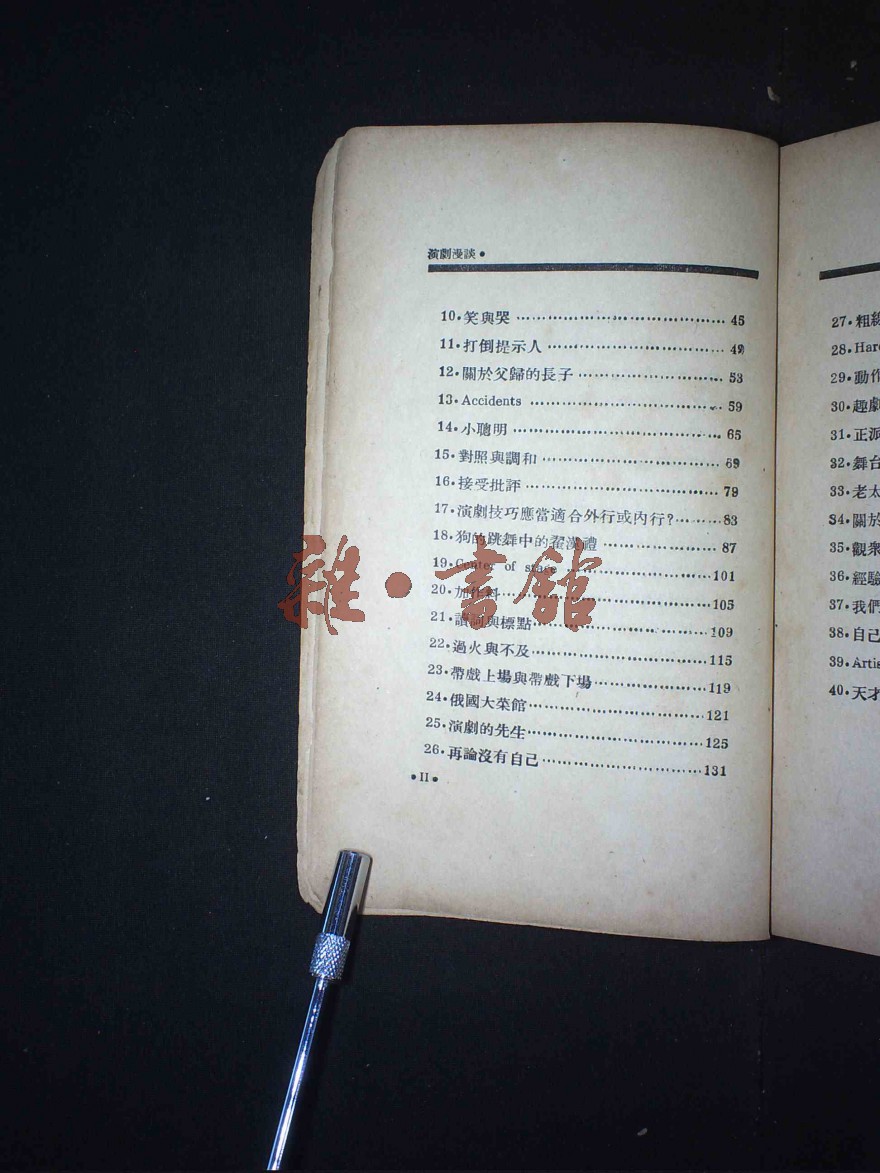 演劇漫談•
10•笑與哭 ........................................ 45
11•打倒提示人 ........................................ 49
12•關於父歸的長子 ........................................ 53
13•Accidents ........................................ 59
14•小聰明 ........................................ 65
15•對照與調和 ........................................ 69
16•接受批評 ........................................ 79
17•演劇技巧應當適合外行或內行?.........83
18•狗的跳舞中的翟漢禮 ........................ 87
19•Center of stage ........................101
20•加作料 ........................................105
21•讀詞與標點 ........................................109
22•過火與不及 ........................................115
23•帶戲上場與帶戲下場 ........................119
24•俄國大菜館 ........................................121
25•演劇的先生 ........................................125
26•再論沒有自己 ........................................131
•II•
27•粗線
28•Har
29•動作
30•趣劇
31•正派
32•舞台
33•老太
34•關於
35•觀衆
36•經驗
37•我們
38•自己
39•Artis
40•天才
雜•書館